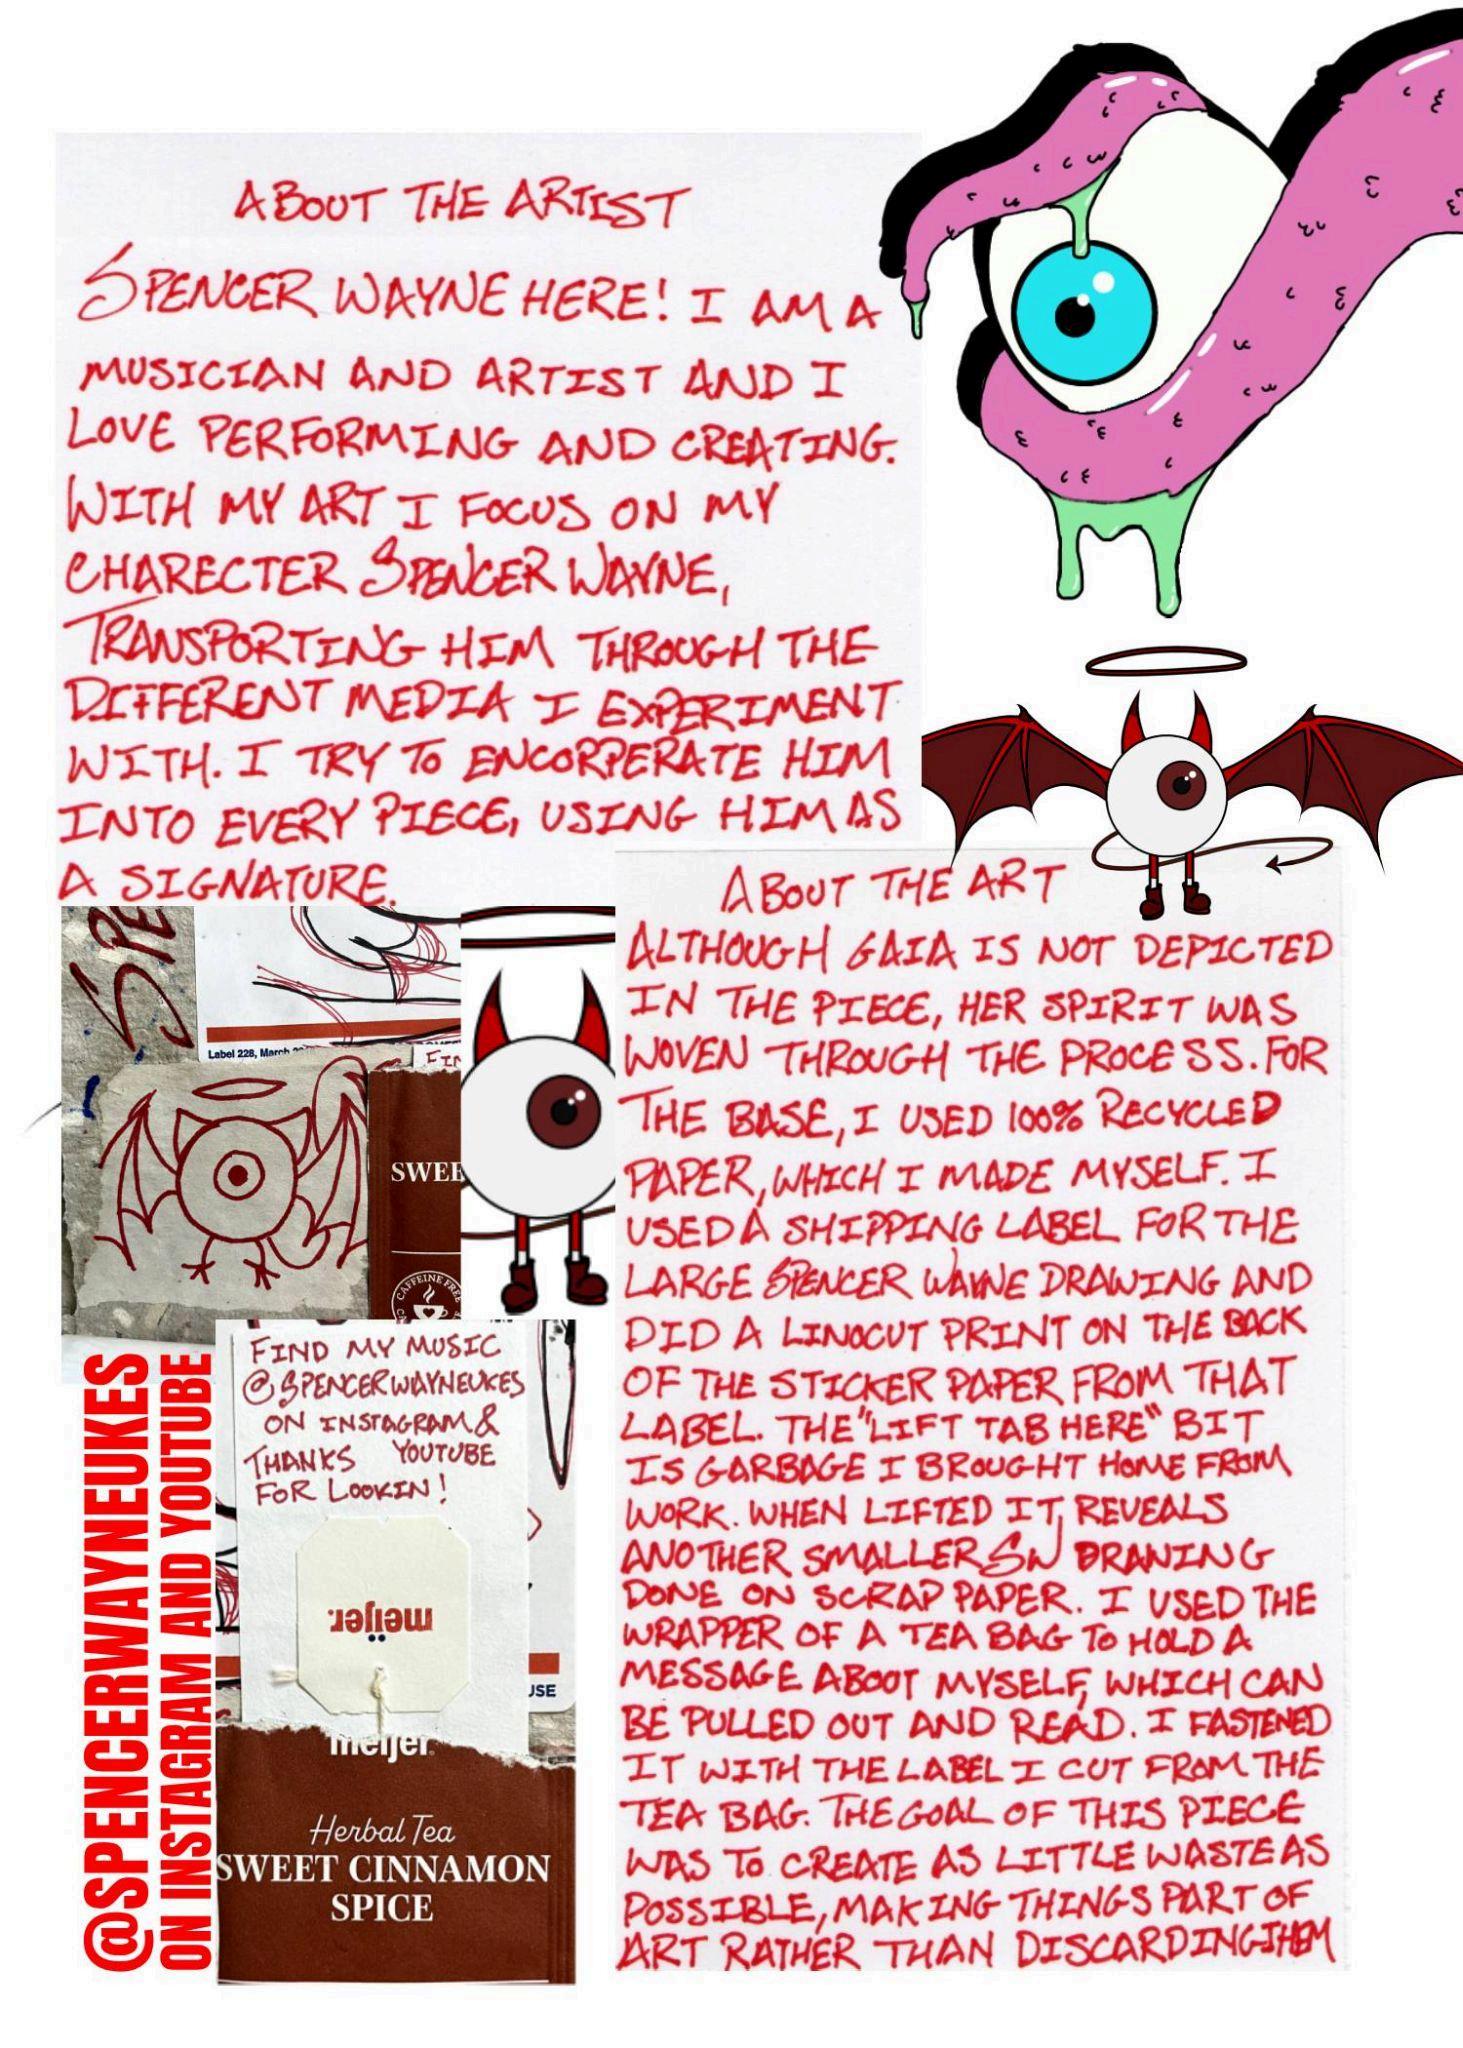 ABOUT THE ARTIST
SPENCER WAYNE HERE! I AM A
MUSICIAN AND ARTIST AND I
LOVE PERFORMING AND CREATING.
WITH MY ART I FOCUS ON MY
CHARECTER SPENCER WAYNE,
TRANSPORTING HIM THROUGH THE
DIFFERENT MEDIA I EXPERIMENT
WITH. I TRY TO ENCORPERATE HIM
INTO EVERY PIECE, USING HIM AS
A SIGNATURE.
ABOUT THE ART
ALTHOUGH GAIA IS NOT DEPICTED
IN THE PIECE, HER SPIRIT WAS
WOVEN THROUGH THE PROCESS. FOR
THE BASE, I USED 100% RECYCLED
PAPER, WHICH I MADE MYSELF. I
USED A SHIPPING LABEL FOR THE
LARGE SPENCER WAYNE DRAWING AND
DID A LINOCUT PRINT ON THE BACK
OF THE STICKER PAPER FROM THAT
LABEL. THE "LIFT TAB HERE" BIT
IS GARBAGE I BROUGHT HOME FROM
WORK. WHEN LIFTED IT REVEALS
ANOTHER SMALLER SW DRAWING
DONE ON SCRAP PAPER. I USED THE
WRAPPER OF A TEA BAG TO HOLD A
MESSAGE ABOUT MYSELF, WHICH CAN
BE PULLED OUT AND READ. I FASTENED
IT WITH THE LABEL I CUT FROM THE
TEA BAG. THE GOAL OF THIS PIECE
WAS TO CREATE AS LITTLE WASTE AS
POSSIBLE, MAKING THINGS PART OF
ART RATHER THAN DISCARDING THEM
SPE
Label 228, March
FIN
SWEE
CAFFEINE FREE
FIND MY MUSIC
@SPENCERWAYNEUKES
ON INSTAGRAM &
THANKS YOUTUBE
FOR LOOKIN!
meijer.
USE
meijer
Herbal Tea
SWEET CINNAMON
SPICE
@SPENCERWAYNEUKES
ON INSTAGRAM AND YOUTUBE